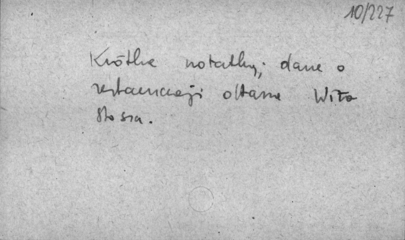 10/227
Krótkie notatki; dane o
restauracji ołtarza Wita
Stosza.